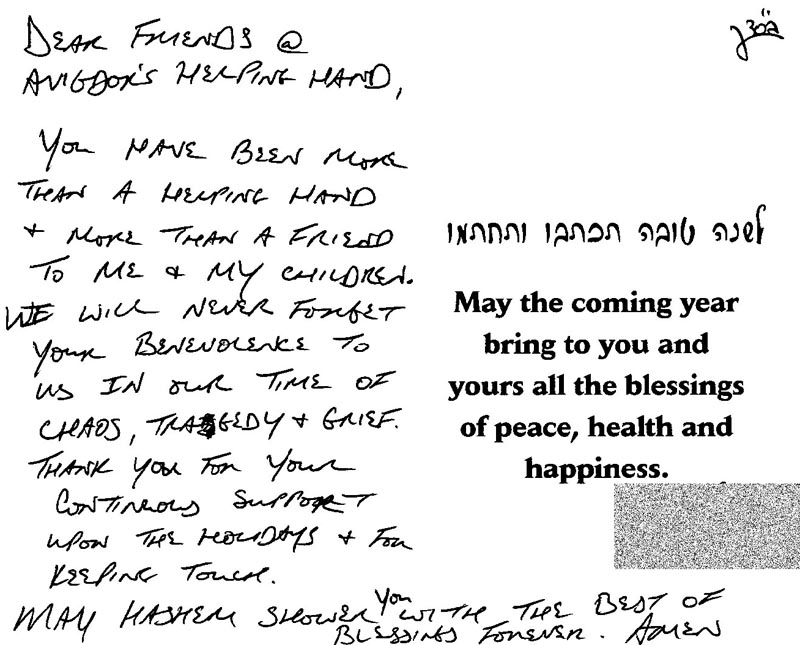 DEAR FRIENDS @
AVIGDOR'S HELPING HAND,
YOU HAVE BEEN MORE
THAN A HELPING HAND
+ MORE THAN A FRIEND
TO ME & MY CHILDREN.
WE WILL NEVER FORGET
YOUR BENEVOLENCE TO
US IN OUR TIME OF
CHAOS, TRAGEDY + GRIEF.
THANK YOU FOR YOUR
CONTINUOUS SUPPORT
UPON THE HOLIDAYS + FOR
KEEPING TOUCH.
MAY HASHEM SHOWER YOU WITH THE BEST OF
BLESSINGS FOREVER. AMEN
לשנה טובה תכתבו ותחתמו
May the coming year
bring to you and
yours all the blessings
of peace, health and
happiness.